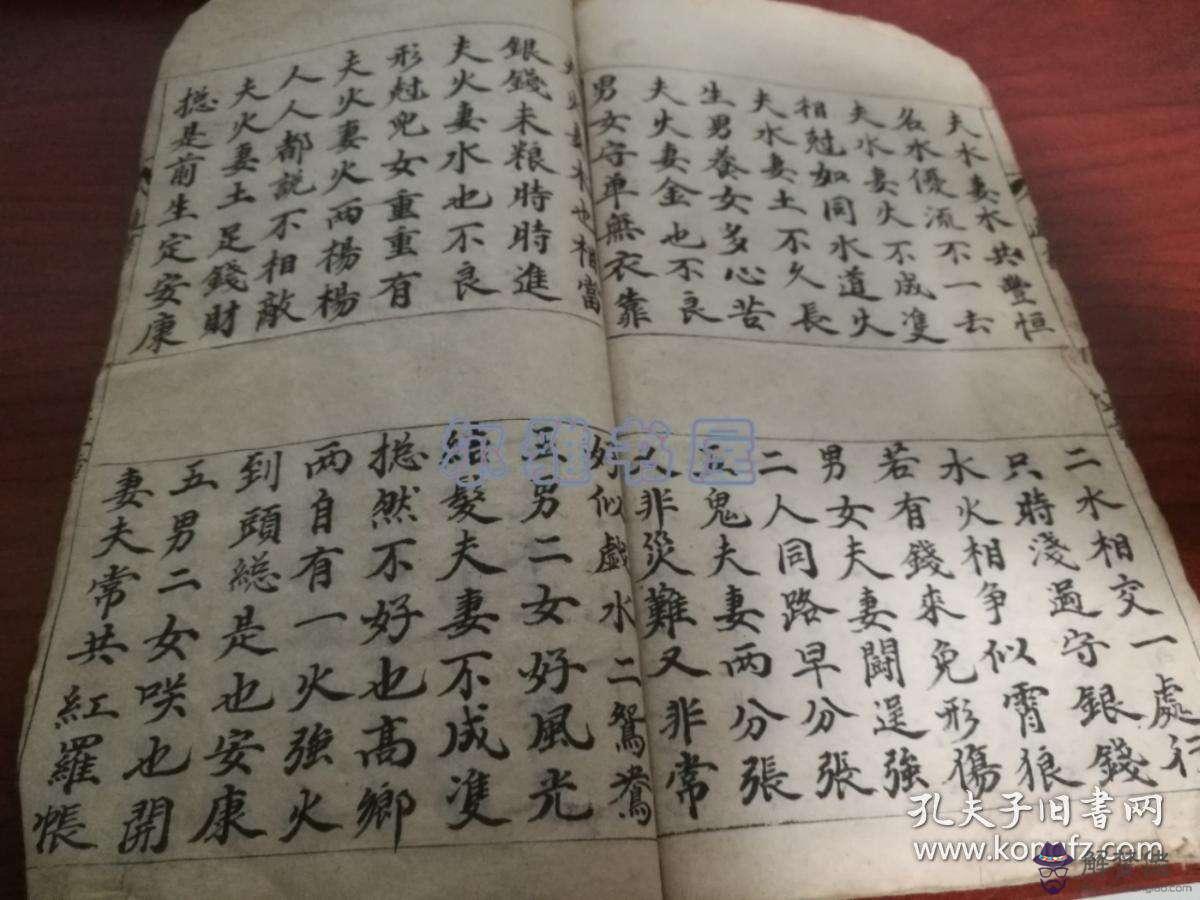 夫水妻水共豐恒
名水優流不一去
夫水妻火不成雙
相尅如同水道火
夫水妻土不久長
生男養女多心苦
夫火妻金也不良
男女守单無衣靠
夫火妻木也相當
銀錢未粮時時進
夫火妻水也不良
形尅兒女重重有
夫火妻火两楊楊
人人都説不相敵
夫火妻土足錢財
捴是前生定安康
二水相交一處行
只時淺過守銀錢
水火相争似霄狼
若有錢來免形傷
男女夫妻鬪逞強
二人同路早分張
五鬼夫妻两分張
人非災難又非常
好似戲水二鴛鴦
五男二女好風光
結髮夫妻不成雙
捴然不好也高鄉
两自有一火強火
到頭總是也安康
五男二女咲也開
妻夫常共紅羅帳
尔雅书屋
孔夫子旧书网
www.kongfz.com
解梦佬